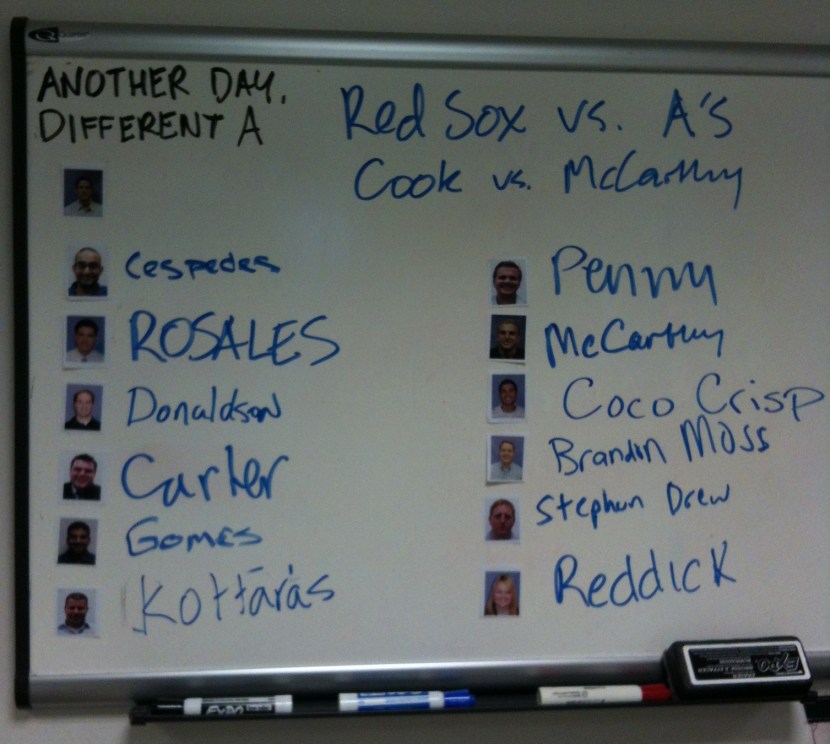 ANOTHER DAY,
DIFFERENT A
Red Sox vs. A's
Cook vs. McCarthy
Cespedes
ROSALES
Donaldson
Carter
Gomes
Kottaras
Penny
McCarthy
Coco Crisp
Brandon Moss
Stephen Drew
Reddick
Quartet
EXPO
EXPO